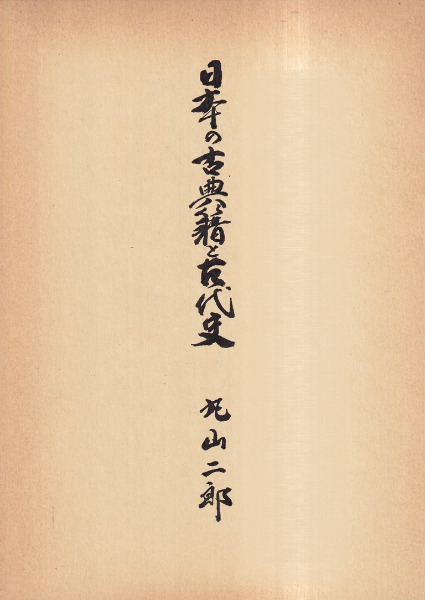 日本の古典籍と古代史
丸山二郎